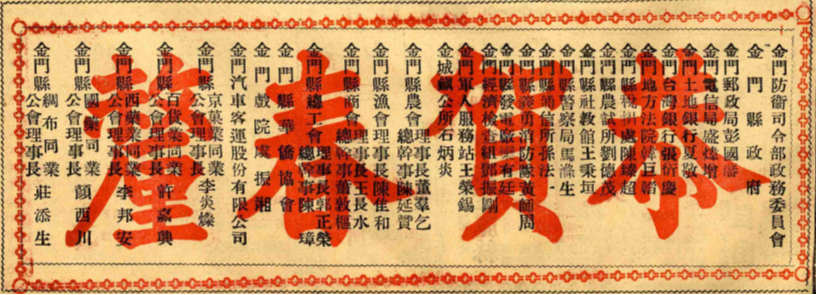 恭賀春釐
金門防衛司令部政務委員會
金門縣政府
金門郵政局彭國藩
金門電信局盛增
金門土地銀行夏敬
金門台灣銀行張衍慶
金門地方法院韓巨韜
金門縣處陳超
金門縣農試所劉德茂
金門縣社教館王秉垣
金門縣警察局馬滌生
金門縣通信所孫法一
金門縣義勇消防隊黃師周
金門縣發電廠有廷
金門經濟檢查組鄧振剛
金門軍人服務站王榮錫
金城鎮公所石炳炎
金門縣農會理事長董羣乞
總幹事陳延贊
金門縣漁會理事長陳隹和
金門縣商會理事長王長水
總幹事董敦樞
金門縣總工會理事長郭正榮
總幹事陳璋
金門縣華僑協會
金門戲院虞振湘
金門汽車客運股份有限公司
金門縣京菓業同業公會理事長李炎燦
金門縣百貨業同業公會理事長許嘉興
金門縣西藥業同業公會理事長李邦安
金門縣國藥同業公會理事長顏西川
金門縣綢布同業公會理事長莊添生